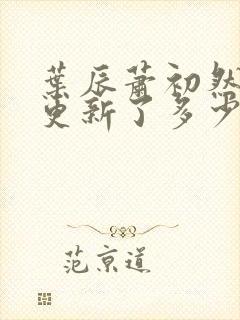 葉辰蕭初然
更新了多少
范京道